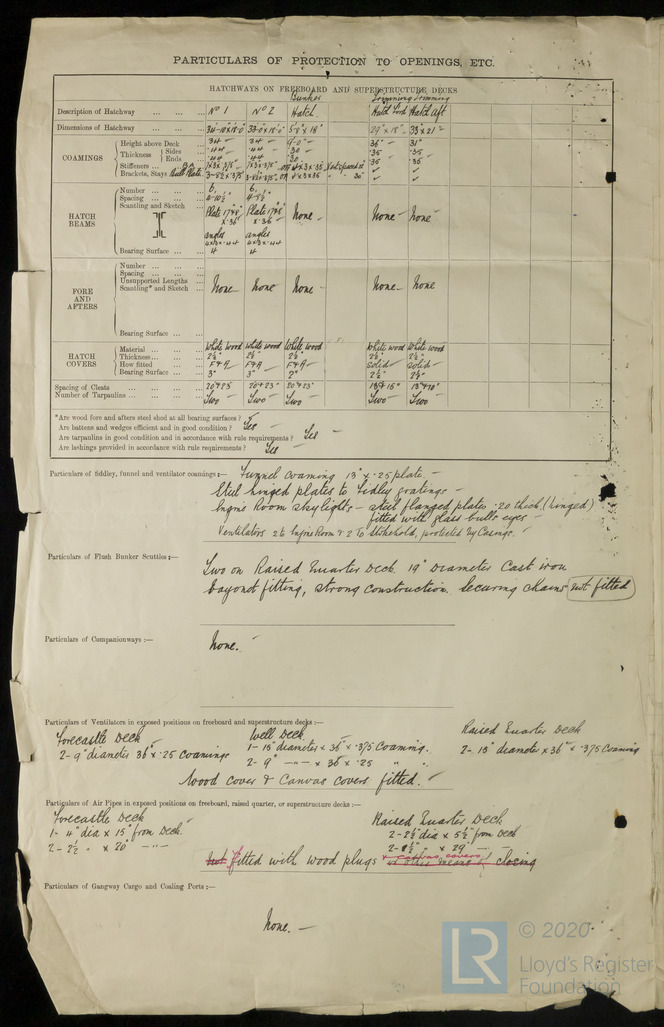 PARTICULARS OF PROTECTION TO OPENINGS, ETC.
HATCHWAYS ON FREEBOARD AND SUPERSTRUCTURE DECKS
Bunker Trimming Trimming
Description of Hatchway Nº 1 Nº 2 Hatch Hatch Hatch aft
Dimensions of Hatchway
COAMINGS
Height above Deck 34 34 36" 31"
Thickness Sides .44 .44 .30 .35 .35
Ends .44 .44 30 .35 .35
Stiffeners
Brackets, Stays
HATCH BEAMS
Number 6, 6,
Spacing
Scantling and Sketch Plate Plate None None None
angles angles
Bearing Surface 4 4
FORE AND AFTERS
Number
Spacing
Unsupported Lengths
Scantling* and Sketch None None None None None
Bearing Surface
HATCH COVERS
Material White wood White wood White wood White wood White wood
Thickness 2½" 2½ 2½" 2½" 2½"
How fitted F+A F+A F+A Solid Solid
Bearing Surface 3" 3" 2" 2½" 2½"
Spacing of Cleats 20+23 20+23" 20+23"
Number of Tarpaulins Two Two Two Two Two
*Are wood fore and afters steel shod at all bearing surfaces?
Are battens and wedges efficient and in good condition? Yes
Are tarpaulins in good condition and in accordance with rule requirements? Yes
Are lashings provided in accordance with rule requirements? Yes
Particulars of fiddley, funnel and ventilator coamings :— Funnel Coaming 13" x .25 plate
Steel hinged plates to Fidley gratings
Engine Room Skylights - steel flanged plates .20 thick (hinged)
fitted with glass bulls eyes
Ventilators 2 to Engine Room & 2 To Stokehold, protected by Casings.
Particulars of Flush Bunker Scuttles :—
Two on Raised Quarter Deck 19" Diameter Cast iron
bayonet fitting, strong construction. Securing chains not fitted
Particulars of Companionways :—
None.
Particulars of Ventilators in exposed positions on freeboard and superstructure decks :—
Forecastle Deck Well Deck Raised Quarter Deck
2- 9" diameter 36" x .25 Coamings 1- 13" diameter x 36" x .375 Coaming. 2- 13" diameter x 36" x .375 Coaming
2- 9" —"— x 36 x .25 " "
Wood cover & Canvas covers fitted.
Particulars of Air Pipes in exposed positions on freeboard, raised quarter, or superstructure decks :—
Forecastle Deck Raised Quarter Deck
1- 4" dia x 15" from Deck. 2- 2½" dia x 5½" from Deck
2- 2½ " x 20" —"— " x 29 —
not fitted with wood plugs & canvas covers or other means of closing
Particulars of Gangway Cargo and Coaling Ports :—
None.
LR
© 2020
Lloyd's Register
Foundation